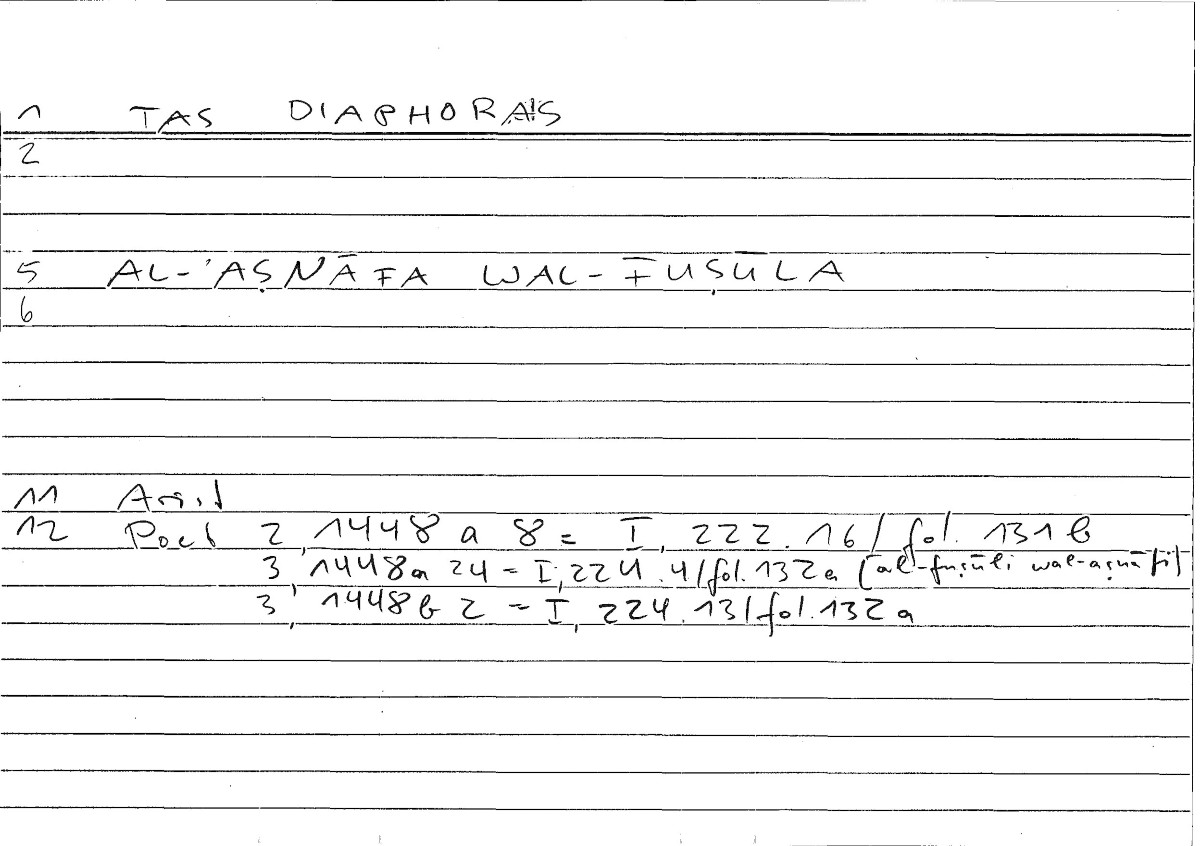 1 TAS DIAPHORAS
2
5 AL-ʾAṢNĀFA WAL-FUṢŪLA
6
11 Arist
12 Poet 2, 1448 a 8 = I, 222.16/fol. 131 b
3, 1448a 24 = I, 224.4/fol. 132a (al-fuṣūli wal-aṣnāfi)
3, 1448b 2 = I, 224.13/fol. 132a